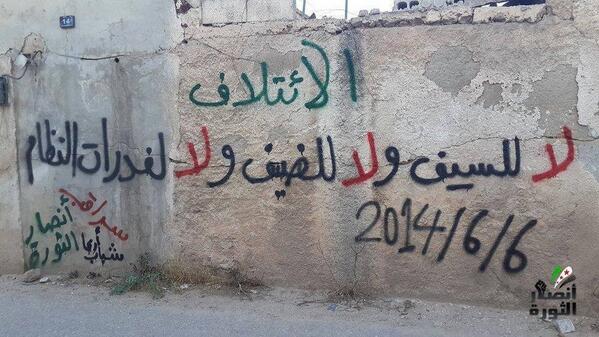 14
الائتلاف
لا للسيف ولا للضيف ولا لغدرات النظام
2014/6/6
سراقب
أنصار
الثورة
أنصار
الثورة